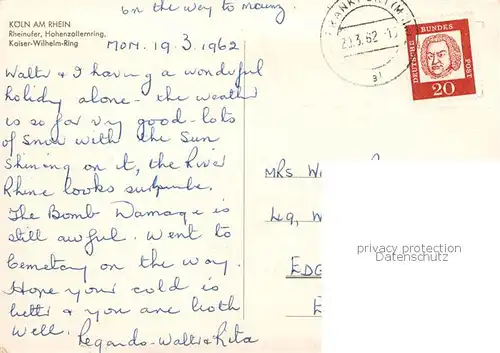 on the way to mainz.
KÖLN AM RHEIN
Rheinufer, Hohenzollernring,
Kaiser-Wilhelm-Ring
MON. 19.3.1962
Walter & I having a wonderful
holiday alone - the weather
is so far vry good - lots
of snow with the sun
shining on it, the River
Rhine looks
The Bomb Damage is
still awful. Went to
Cemetary on the way.
Hope your cold is
better & you are both
well.
Regards - Walter & Rita
FRANKFURT (M
20.3.62
DEUTSCHE BUNDES POST
20
MRS W
49, W
EDG
E
privacy protection
DaTenschuTz